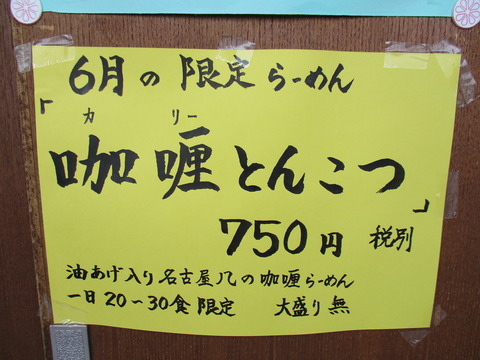 6月の限定らーめん
カリー
「咖喱とんこつ」
750円 税別
油あげ入り名古屋八の咖喱らーめん
一日20～30食限定 大盛り無